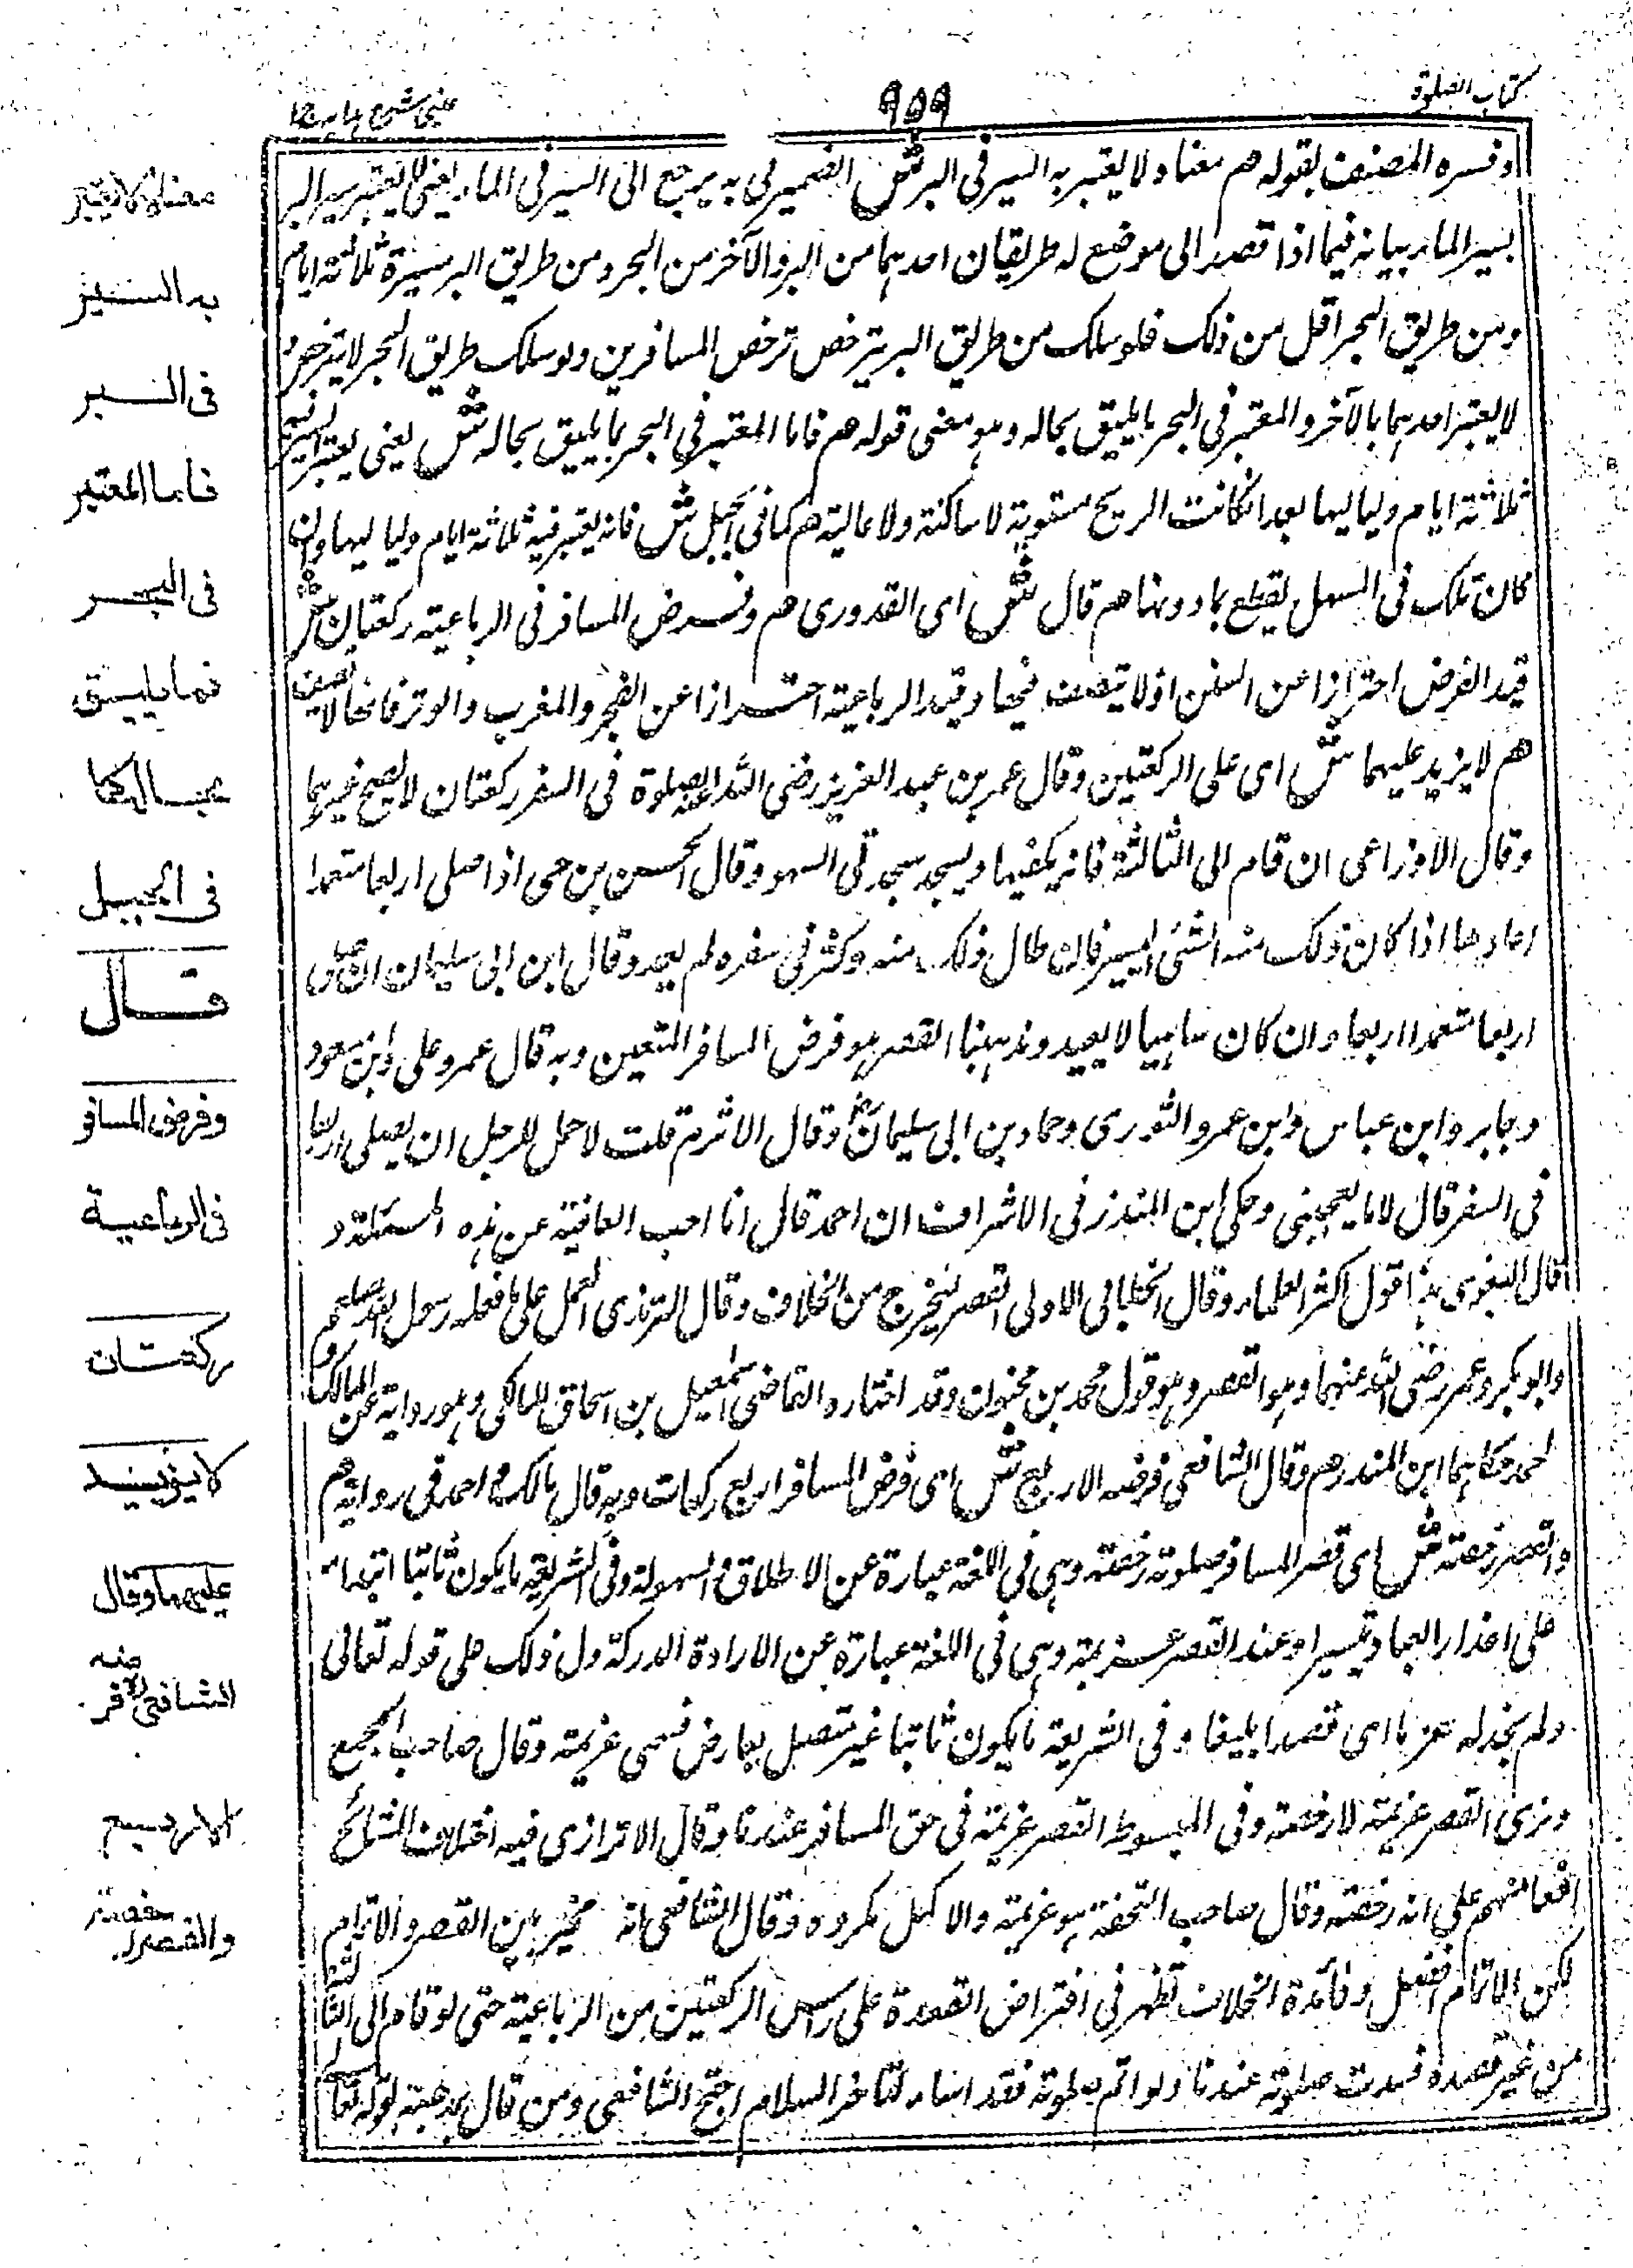 كتاب الصلوة
٩٥٩
عينى شرح هدايه ج ١٢
وفسره المصنف بقوله هم معناه لا يعتبر به السير فى البر ش الضمير فى به يرجع الى السير فى الماء يعنى لا يعتبر سير البر
بسير الماء بيانه فيما اذا قصد الى موضع له طريقان احدهما من البر والآخر من البحر ومن طريق البر مسيرة ثلاثة ايام
ومن طريق البحر اقل من ذلك فلو سلك من طريق البر يترخص ترخص المسافرين ولو سلك طريق البحر لا يترخص و
لا يعتبر احدهما بالآخر والمعتبر فى البحر ما يليق بحاله وهو معنى قوله هم فاما المعتبر فى البحر بما يليق بحاله ش يعنى يعتبر السير فيه
ثلاثة ايام ولياليها بعد انكانت الريح مستوية لا ساكنة ولا عالية هم كما فى الجبل ش فانه يعتبر فيه ثلاثة ايام ولياليها وان
كان تلك فى السهل يقطع بما دونها هم قال ش اى القدورى هم وفرض المسافر فى الرباعية ركعتان ش
قيد الفرض احترازا عن السنن اذ لا يتنصف فيها وقيد الرباعية احترازا عن الفجر والمغرب والوتر فانها لا تنصف
هم لا يزيد عليهما ش اى على الركعتين وقال عمر بن عبد العزيز رضى الله عنه الصلوة فى السفر ركعتان لا يصح غيرهما
وقال الاوزاعى ان قام الى الثالثة فانه يكفيها ويسجد سجدتى السهو وقال الحسن بن حى اذا صلى اربعا متعمدا
اعادها اذا كان ذلك منه الشئ اليسير فان طال ذلك منه وكثر فى سفره لم يعد وقال ابن ابى سليمان ان صلى
اربعا متعمدا اربعا وان كان ساهيا لا يعيد ومذهبنا القصر هو فرض المسافر المتعين وبه قال عمر وعلى وابن مسعود
وجابر وابن عباس وابن عمر والثورى وحماد بن ابى سليمان وقال الاثرم قلت لاحمد للرجل ان يصلى اربعا
فى السفر قال لا ما يعجبنى وحكى ابن المنذر فى الاشراف ان احمد قال انا احب العافية عن هذه المسئلة و
قال البغوى هذا قول اكثر العلماء وقال الخطابى الاولى القصر ليخرج من الخلاف وقال الترمذى العمل على ما فعله رسول الله صلعم
وابو بكر وعمر رضى الله عنهما وهو القصر وهو قول محمد بن سحنون وقد اختاره القاضى اسمعيل بن اسحاق المالكى وهو رواية عن مالك و
احمد حكاهما ابن المنذر هم وقال الشافعى فرضه الاربع ش اى فرض المسافر اربع ركعات وبه قال مالك واحمد فى رواية هم
والقصر رخصة ش اى قصر المسافر صلوته رخصة وهى فى اللغة عبارة عن الاطلاق والسهولة وفى الشريعة ما يكون ثابتا ابتداء
على اعذار العباد تيسيرا وعندنا القصر عزيمة وهى فى اللغة عبارة عن الارادة المدركة دل ذلك على قوله تعالى
ولم نجد له عزما اى قصدا بليغا وفى الشريعة ما يكون ثابتا غير متصل بعارض فسمى عزيمة وقال صاحب المجمع
ونرى القصر عزيمة لا رخصة وفى المبسوط القصر عزيمة فى حق المسافر عندنا وقال الاترازى فيه اختلاف المشائخ
منهم على انه رخصة وقال صاحب التحفة هو عزيمة والاكمل مكروه وقال الشافعى انه مخير بين القصر والاتمام
لكن الاتمام افضل وفائدة الخلاف تظهر فى افتراض القعدة على رأس الركعتين من الرباعية حتى لو قام الى الثالثة
من غير قعدة فسدت صلوته عندنا ولو اتم صلوته فقد اساء لتاخر السلام احتج الشافعى ومن قال بمذهبه بقوله تعالى
معناه لا يعتبر
به السير
فى البر
فاما المعتبر
فى البحر
فما يليق
بحاله كما
فى الجبل
قال
وفرض المسافر
فى الرباعية
ركعتان
لا يزيد
عليهما وقال
الشافعى فرضه
الاربع
والقصر رخصة